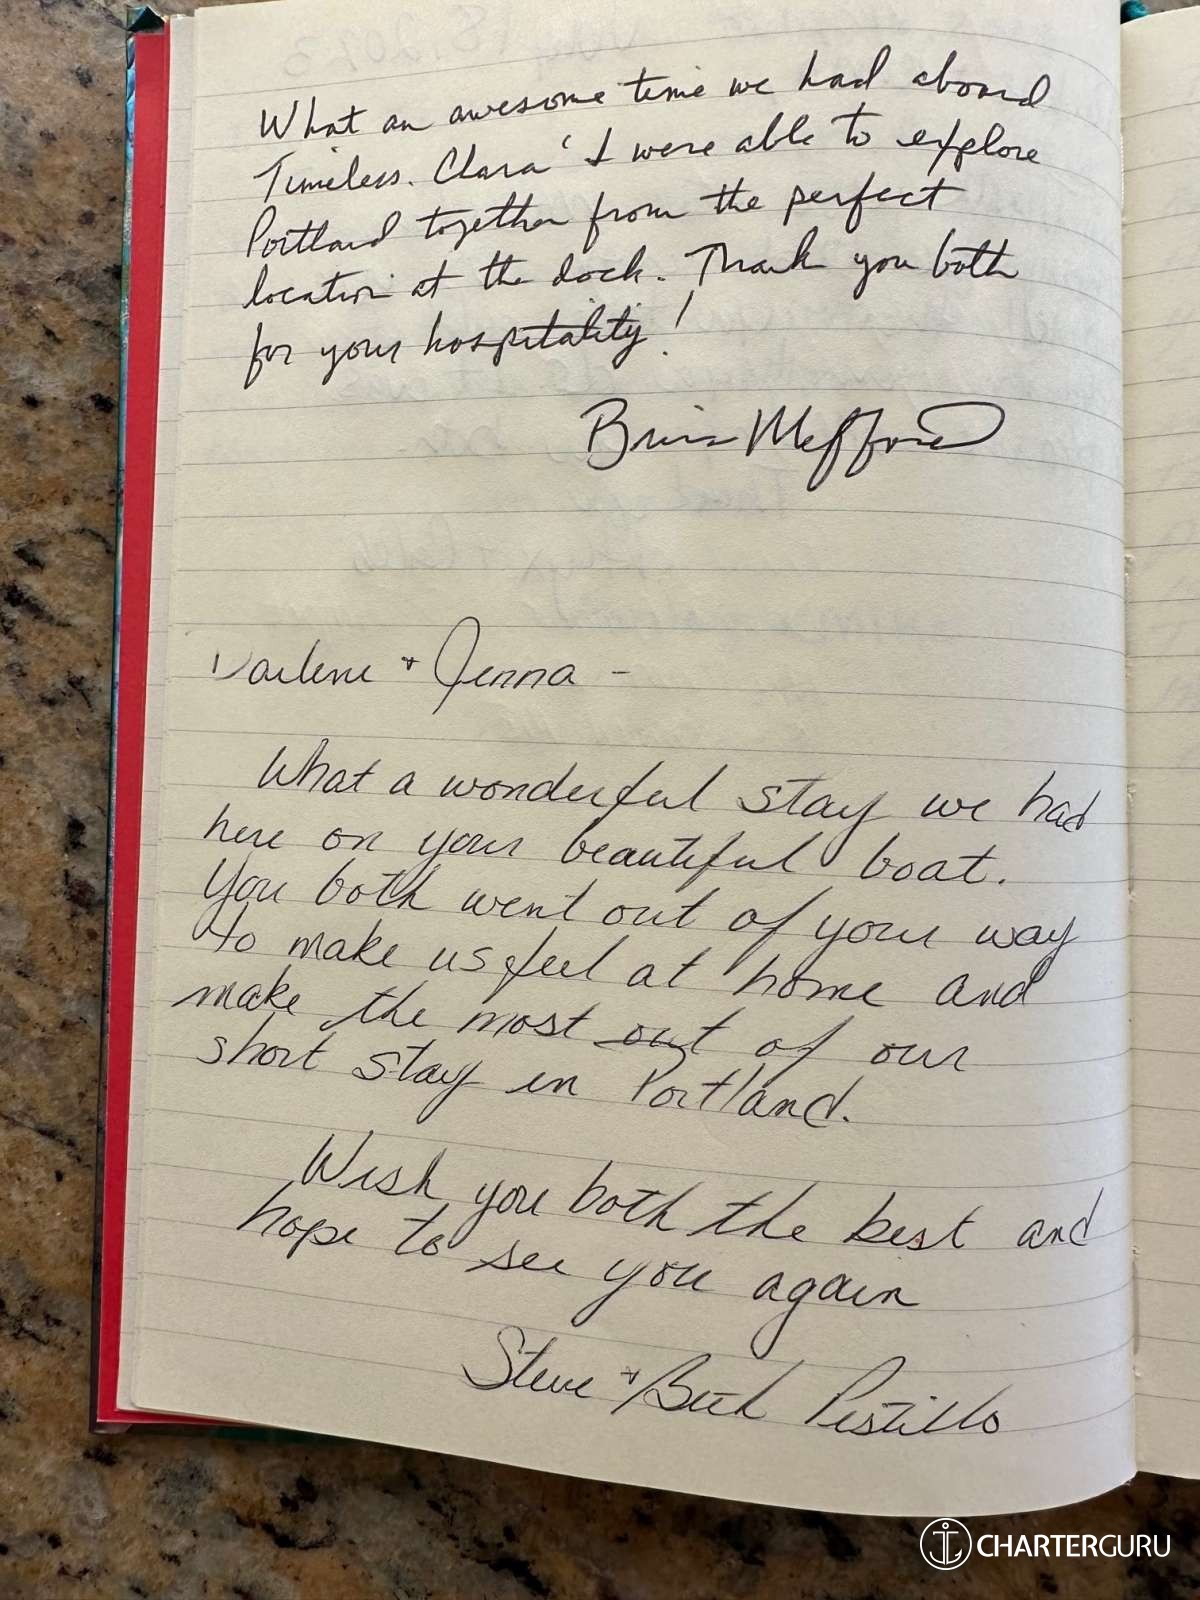 What an awesome time we had aboard
Timeless. Clara & I were able to explore
Portland together from the perfect
location at the dock. Thank you both
for your hospitality!
Brian Mefford
Darlene + Jenna -
What a wonderful stay we had
here on your beautiful boat.
You both went out of your way
to make us feel at home and
make the most out of our
short stay in Portland.
Wish you both the best and
hope to see you again
Steve + Beth Pistillo
CHARTERGURU